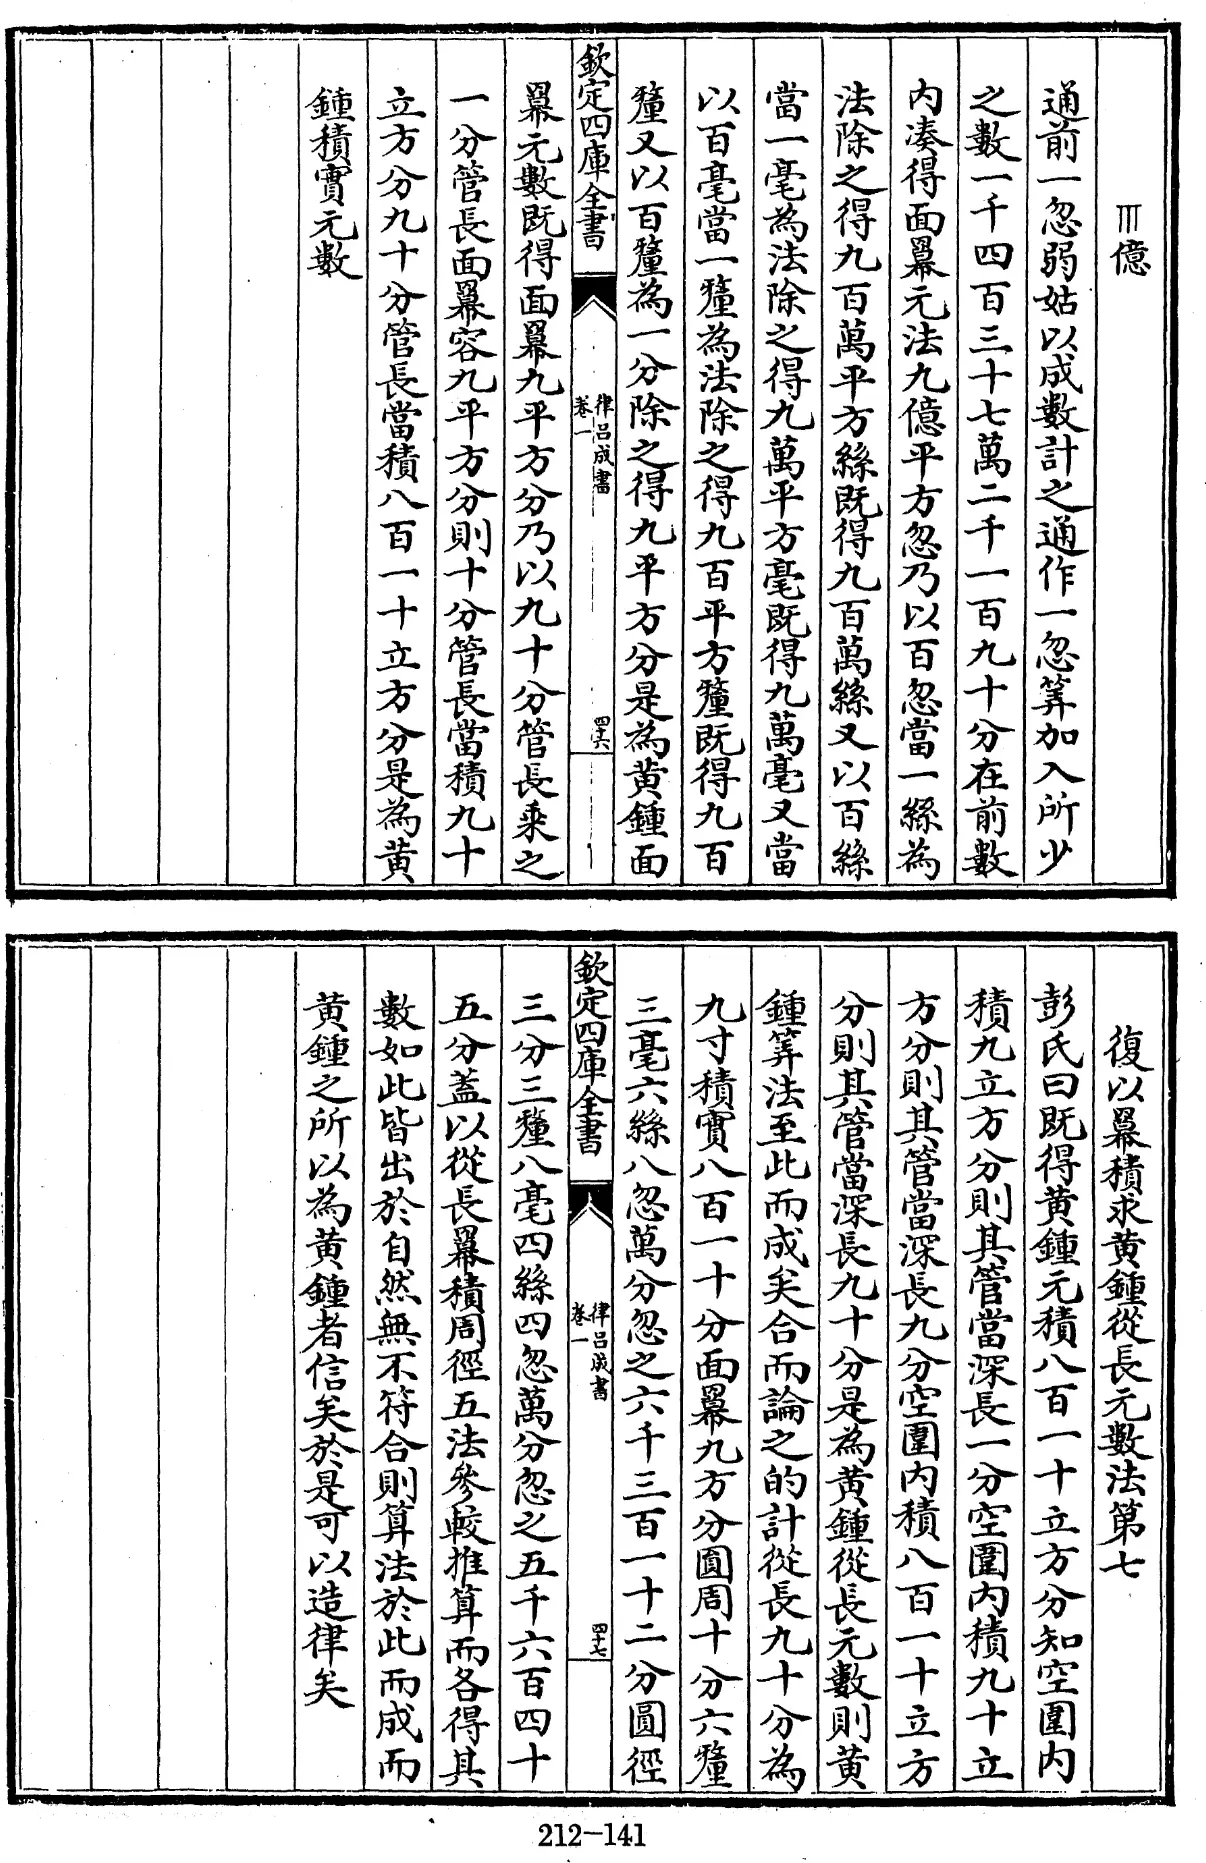 〣億
通前一忽弱姑以成數計之通作一忽筭加入所少
之數一千四百三十七萬二千一百九十分在前數
内凑得面羃元法九億平方忽乃以百忽當一絲為
法除之得九百萬平方絲既得九百萬絲又以百絲
當一毫為法除之得九萬平方毫既得九萬毫又當
以百毫當一釐為法除之得九百平方釐既得九百
釐又以百釐為一分除之得九平方分是為黄鍾面
欽定四庫全書
律吕成書
卷一
四十六
羃元數既得面羃九平方分乃以九十分管長乘之
一分管長面羃容九平方分則十分管長當積九十
立方分九十分管長當積八百一十立方分是為黄
鍾積實元數
復以羃積求黄鍾從長元數法第七
彭氏曰既得黄鍾元積八百一十立方分知空圍内
積九立方分則其管當深長一分空圍内積九十立
方分則其管當深長九分空圍内積八百一十立方
分則其管當深長九十分是為黄鍾從長元數則黄
鍾筭法至此而成矣合而論之的計從長九十分為
九寸積實八百一十分面羃九方分圓周十分六釐
三毫六絲八忽萬分忽之六千三百一十二分圓徑
欽定四庫全書
律吕成書
卷一
四十七
三分三釐八毫四絲四忽萬分忽之五千六百四十
五分蓋以從長羃積周徑五法參較推算而各得其
數如此皆出於自然無不符合則算法於此而成而
黄鍾之所以為黄鍾者信矣於是可以造律矣
212-141